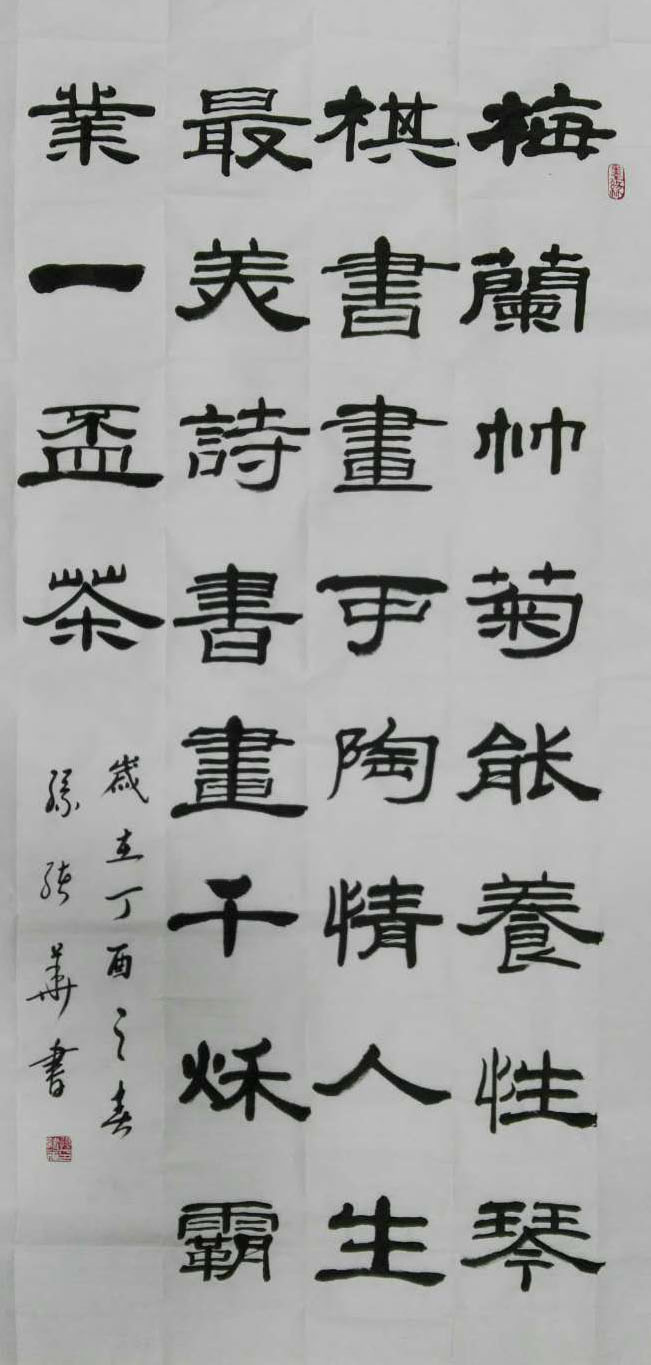 梅蘭竹菊能養性琴
棋書畫可陶情人生
最美詩書畫千秌霸
業一盃茶
歲在丁酉之春
孫張華書